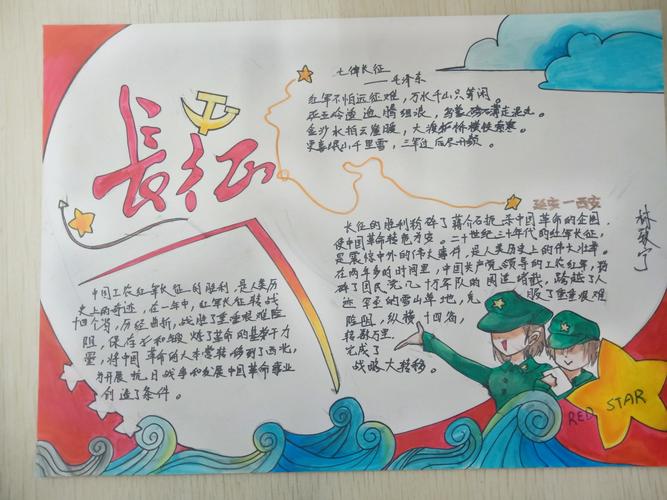 長征
七律长征
——毛泽东
红军不怕远征难，万水千山只等闲。
五岭逶迤腾细浪，乌蒙磅礴走泥丸。
金沙水拍云崖暖，大渡桥横铁索寒。
更喜岷山千里雪，三军过后尽开颜。
延安—西安
长征的胜利粉碎了蒋介石扼杀中国革命的企图，
使中国革命转危为安。二十世纪三十年代的红军长征，
是震惊中外的伟大事件，是人类历史上的伟大壮举。
在两年多的时间里，中国共产党领导的工农红军，粉
碎了国民党几十万军队的围追堵截，跨越了人
迹罕至的雪山草地，克服了重重艰难
险阻，纵横十四省，
转战万里，
完成了
战略大转移。
中国工农红军长征的胜利，是人类历
史上的奇迹，在一年中，红军长征转战
十四个省，历经曲折，战胜了重重艰难险
阻，保存了和锻炼了革命的基干力
量，将中国革命的大本营转移到了西北，
为开展抗日战争和发展中国革命事业
创造了条件。
RED STAR